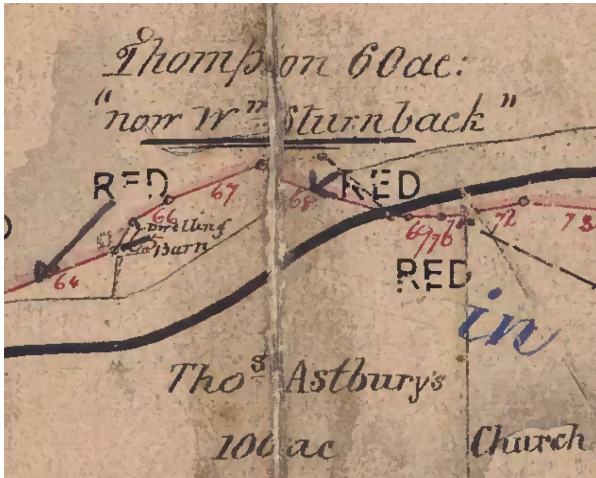 Thompson 60 ac:
"now Wm Sturnback"
RED
67
68
RED
66
Dwelling
Barn
64
69
72
73
RED
in
Thos Astbury's
100 ac
Church